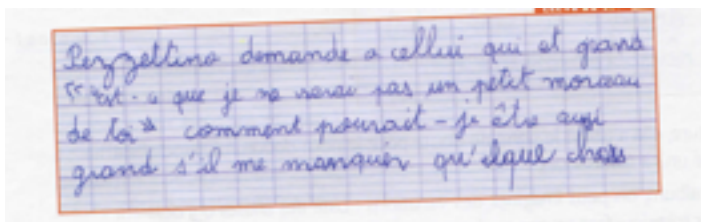 Pezzettino demande a cellui qui et grand
"est-u que je ne serai pas un petit morceau
de toi" comment pourait-je être aussi
grand s'il me manquer qu'elque chose